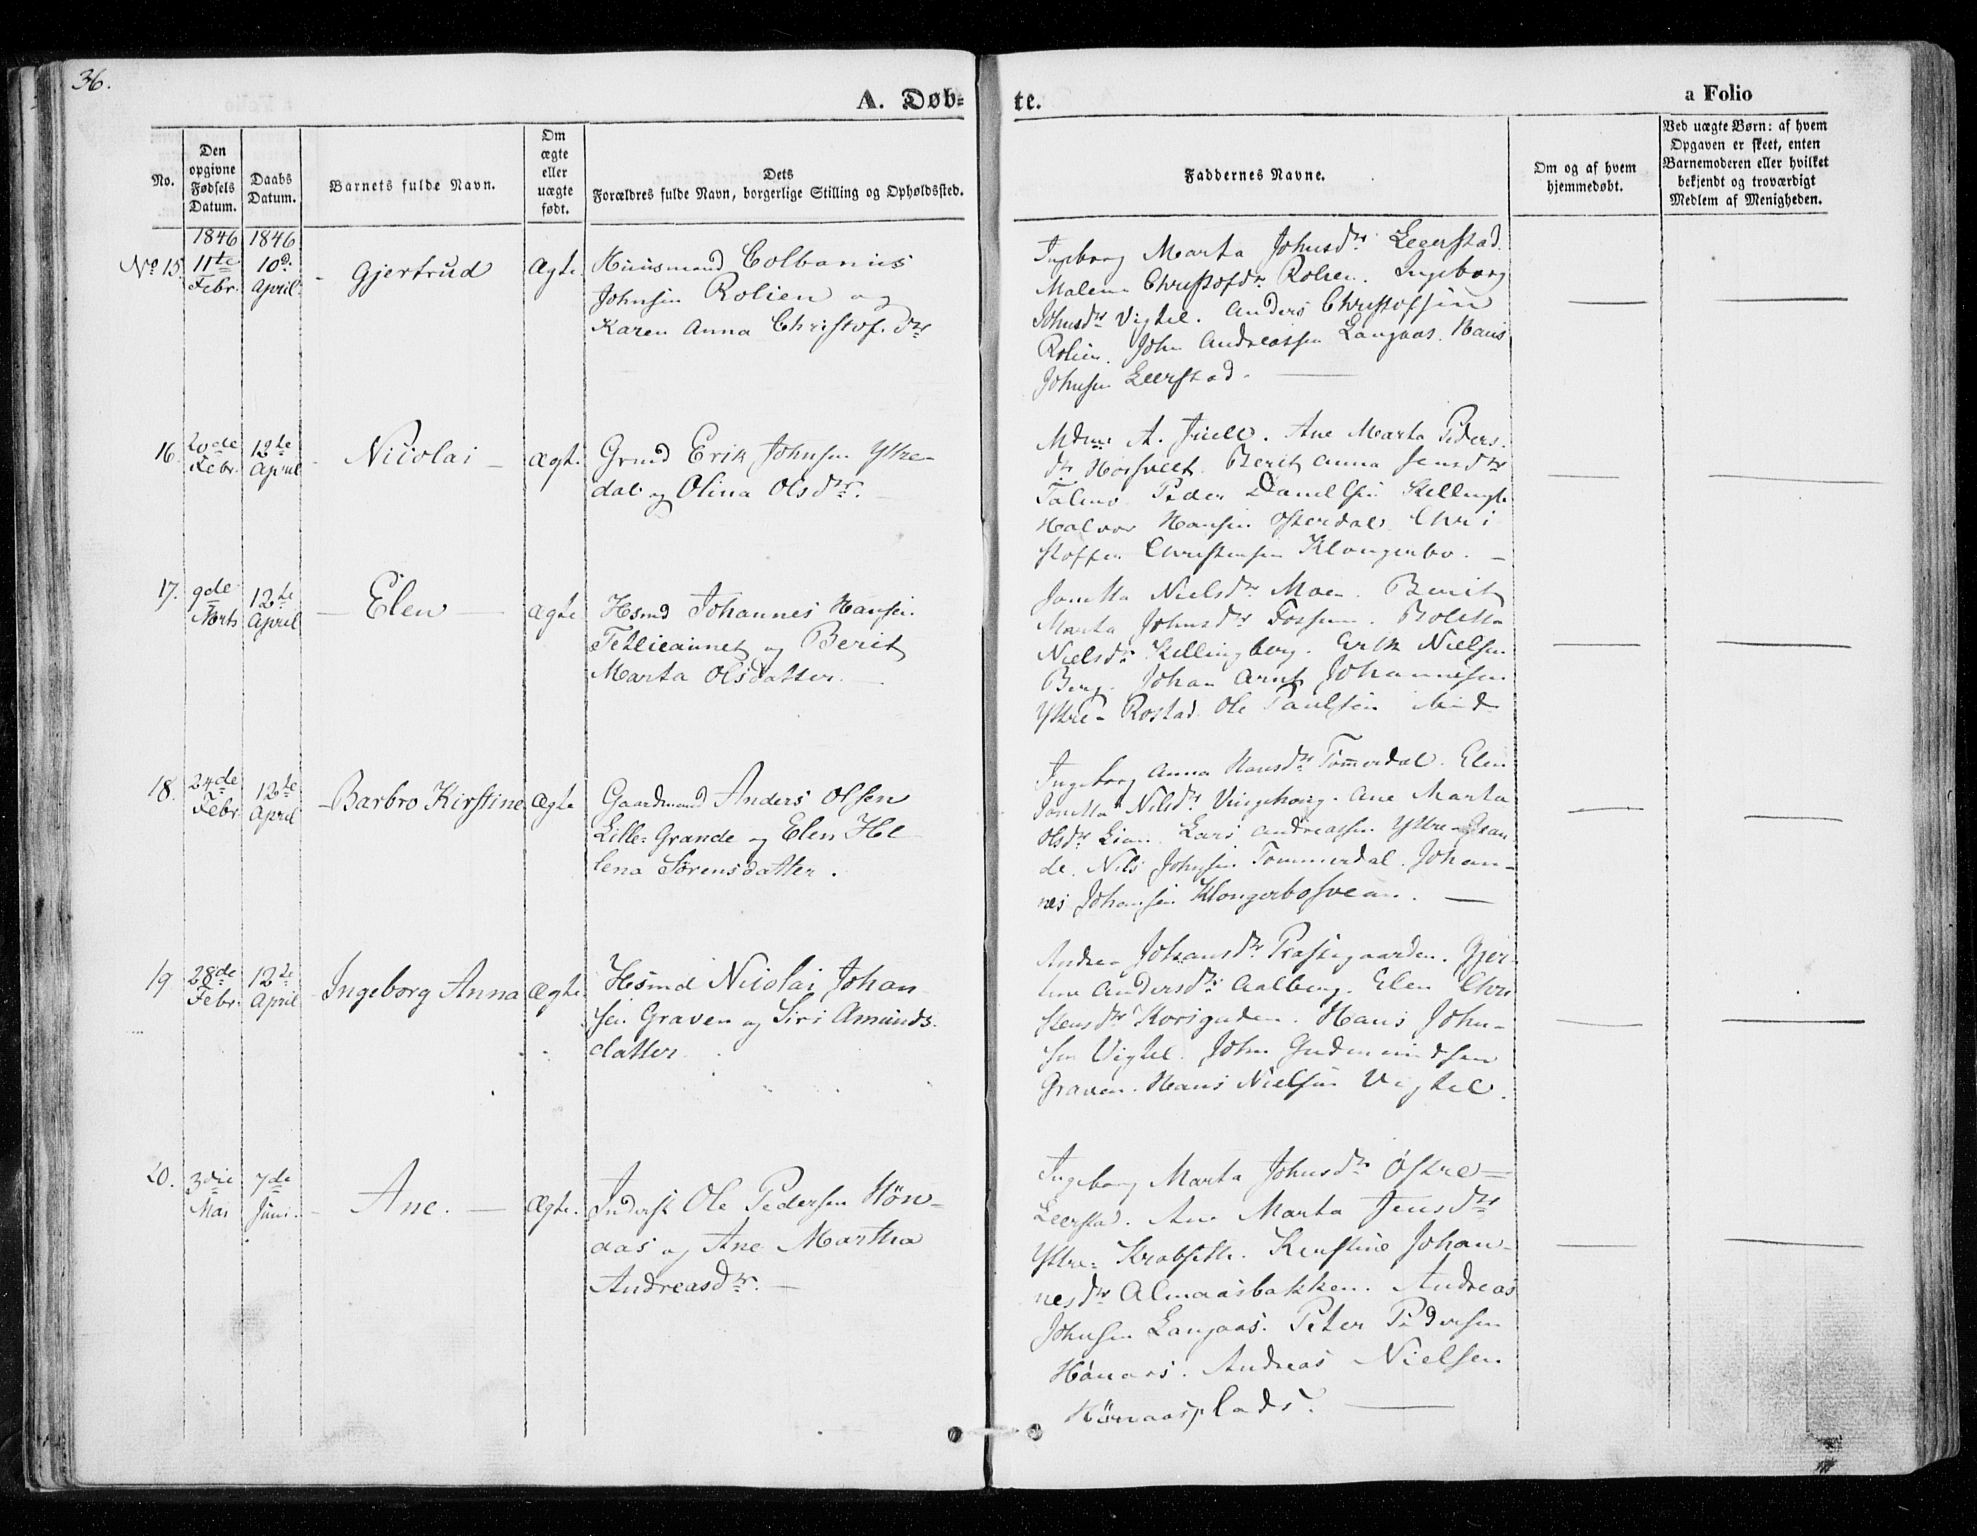 36.
A. Døb=
te.
a Folio
No.
Den opgivne Fødsels Datum.
Daabs Datum.
Barnets fulde Navn.
Om ægte eller uægte født.
Dets
Forældres fulde Navn, borgerlige Stilling og Opholdssted.
Faddernes Navne.
Om og af hvem hjemmedøbt.
Ved uægte Børn: af hvem
Opgaven er skeet, enten
Barnemoderen eller hvilket
bekjendt og troværdigt
Medlem af Menigheden.
1846 1846
No 15 11te Febr. 10de April - Gjertrud Ægte Huusmand Colbanus
Johnsen Rolien og
Karen Anna Christof.dtr
Ingeborg Marta Johnsdtr Leerstad
Malene Christofdtr Rolien. Ingeborg
Johnsdtr Vigtel. Anders Christofsen
Rolien. John Andreassen Langaas. Hans
Johnsen Leerstad. —
16. 20de Febr. 12te April - Nicolai - Ægte Grmd Erik Johnsen Yttre-
dal og Olina Olsdtr.
Mdme A. Juell. Ane Marta Peders-
dtr. Berit Anna Jensdtr
Peder Danielsen
Halvor Hansen Østerdal. Chri
stoffer Christensen Klongerbo. -
17. 9de Marts 12te April - Elen - Ægte Hsmd Johannes Hansen
og Berit
Marta Olsdatter. -
Jonetta Nielsdtr Moen. Berit
Marta Johnsdtr Fossem. Boletta
Nielsdtr Kellingberg. Erik Nielsen
Berg. Johan Arnt Johannesen
Yttre- Rostad. Ole Paulsen
18. 24de Febr 12te April - Barbro Kirstine Ægte Gaardmand Anders Olsen
Lille-Grande og Elen He
lena Sørensdatter.
Ingeborg Anna Hansdtr Tømmerdal. Elen
Jonetta Nilsdtr Vingehaug. Ane Marta
Olsdtr Lian. Lars Andreassen Yttre-Gran
de. Nils Johnsen Tommerdal. Johan-
nes Johansen Klongerbosvean. —
19 28de Febr. 12te April - Ingeborg Anna Ægte Hsmd Nicolai Johan
sen Graven og Siri Amunds-
datter.
Andrea Johansdtr Præstegaarden. Gjer-
tine Andersdtr Aalberg. Elen Chri
stensdtr Korsguden. Hans John-
sen Vigtel. John Gudmundsen
Graven. Hans Nielsen Vigtel.
20. 3die Mai 7de Juni - Ane. - Ægte. Inderst Ole Pedersen Høn-
aas og Ane Martha
Andreasdtr. -
Ingeborg Marta Johnsdtr Østre-
Leerstad. Ane Marta Jensdtr
Yttre- Krobseth. Kirstine Johan-
nesdtr Almaasbakken. Andreas
Johnsen Langaas. Peter Pedersen
Hønaas. Andreas Nielsen
Hønaasplads. —